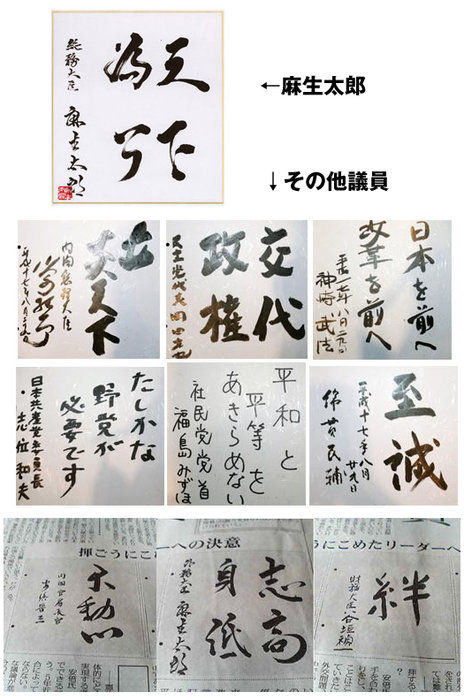 天下
為公
総務大臣 麻生太郎
←麻生太郎
↓その他議員
天下
内閣総理大臣
平成十七年八月
交代
政権
民主党代表 岡田克也
日本を前へ
改革を前へ
平成十七年八月二九日
神崎武法
たしかな
野党が
必要です
日本共産党委員長
志位和夫
平和と
平等を
あきらめない
社民党党首
福島みずほ
至誠
平成十七年八月
廿九日
綿貫民輔
揮ごうにこ
への決意
うにこめたリーダーへ
不動心
内閣官房長官
安倍晋三
志高
身低
外務大臣 麻生太郎
絆
財務大臣 谷垣禎一